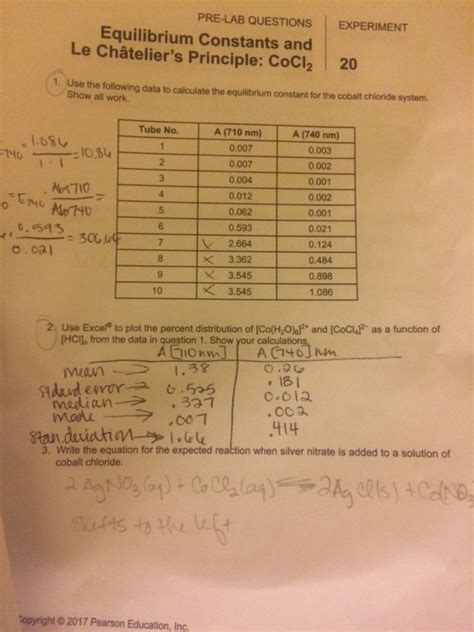 PRE-LAB QUESTIONS
EXPERIMENT
Equilibrium Constants and
Le Châtelier's Principle: CoCl₂
20
1. Use the following data to calculate the equilibrium constant for the cobalt chloride system.
Show all work.
Tube No. A (710 nm) A (740 nm)
1 0.007 0.003
2 0.007 0.002
3 0.004 0.001
4 0.012 0.002
5 0.062 0.001
6 0.593 0.021
7 2.664 0.124
8 3.362 0.484
9 3.545 0.898
10 3.545 1.086
740 1.086 = 10.86
1 · 1
= ε740 Abs710
Ab740
0.593 = 306.66
0.021
2. Use Excel® to plot the percent distribution of [Co(H₂O)₆]²⁺ and [CoCl₄]²⁻ as a function of
[HCl], from the data in question 1. Show your calculations.
A [710nm] A [740] nm
mean → 1.38 0.26
stdard error → 0.525 .181
median → .327 0.012
mode → .007 .002
stan. deviation → 1.66 .414
3. Write the equation for the expected reaction when silver nitrate is added to a solution of
cobalt chloride.
2 AgNO₃(aq) + CoCl₂(aq) ⇌ 2AgCl(s) + Co(NO₃
shifts to the left
opyright © 2017 Pearson Education, Inc.